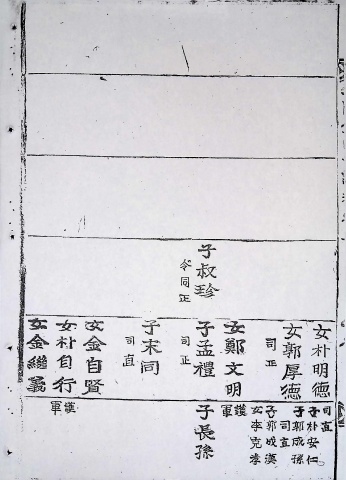 子叔珍
令同正
女朴明德
女郭厚德
司正
女鄭文明
子孟禮
司正
子末同
司直
女金自賢
女朴自行
女金繼義
司直
子朴安仁
子郭成孫
司直
子郭成漢
女李克孝
護軍
子長孫
護軍